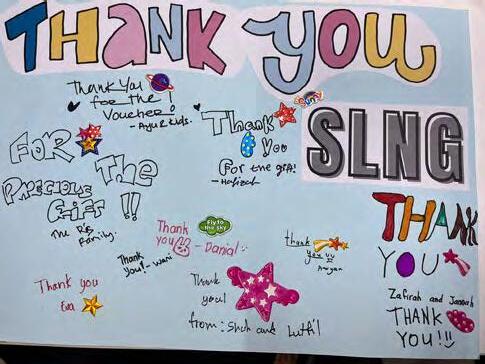 THANK YOU
Thank You
for the
Voucher!
- Ayu & kids.
sorry
Thank
you
for the gift!
- Hafizah
SLNG
FOR
THE
PRECIOUS
GIFT !!
The R's
Family.
Thank
you! - Wani
Thank
you
- Danial
Fly to
the sky
thank
you
Thank you
Eva
Thank
you!
from:
THANK
YOU
Zafirah and Jannah
THANK
YOU!!